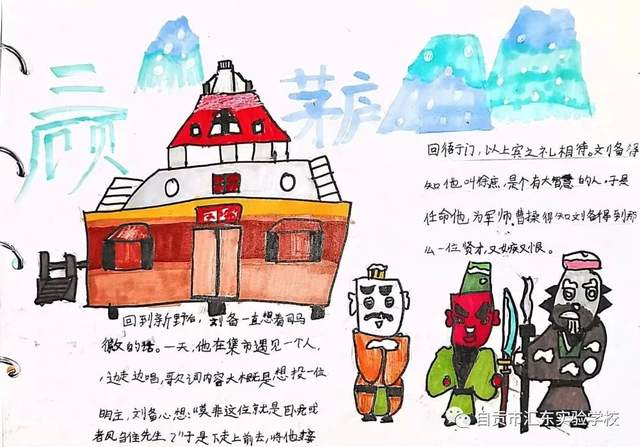 三顾
茅庐
回衙于门,以上宾之礼相待。刘备得
知他叫徐庶,是个有大智慧的人,于是
任命他为军师,曹操得知刘备得到那
么一位贤才,又嫉又恨。
回到新野后,刘备一直想着司马
徽的话。一天,他在集市遇见一个人,
边走边唱,歌词内容大概是想投一位
明主,刘备心想:"莫非这位就是卧龙或
者凤雏先生?"于是下走上前去,将他接
自贡市汇东实验学校